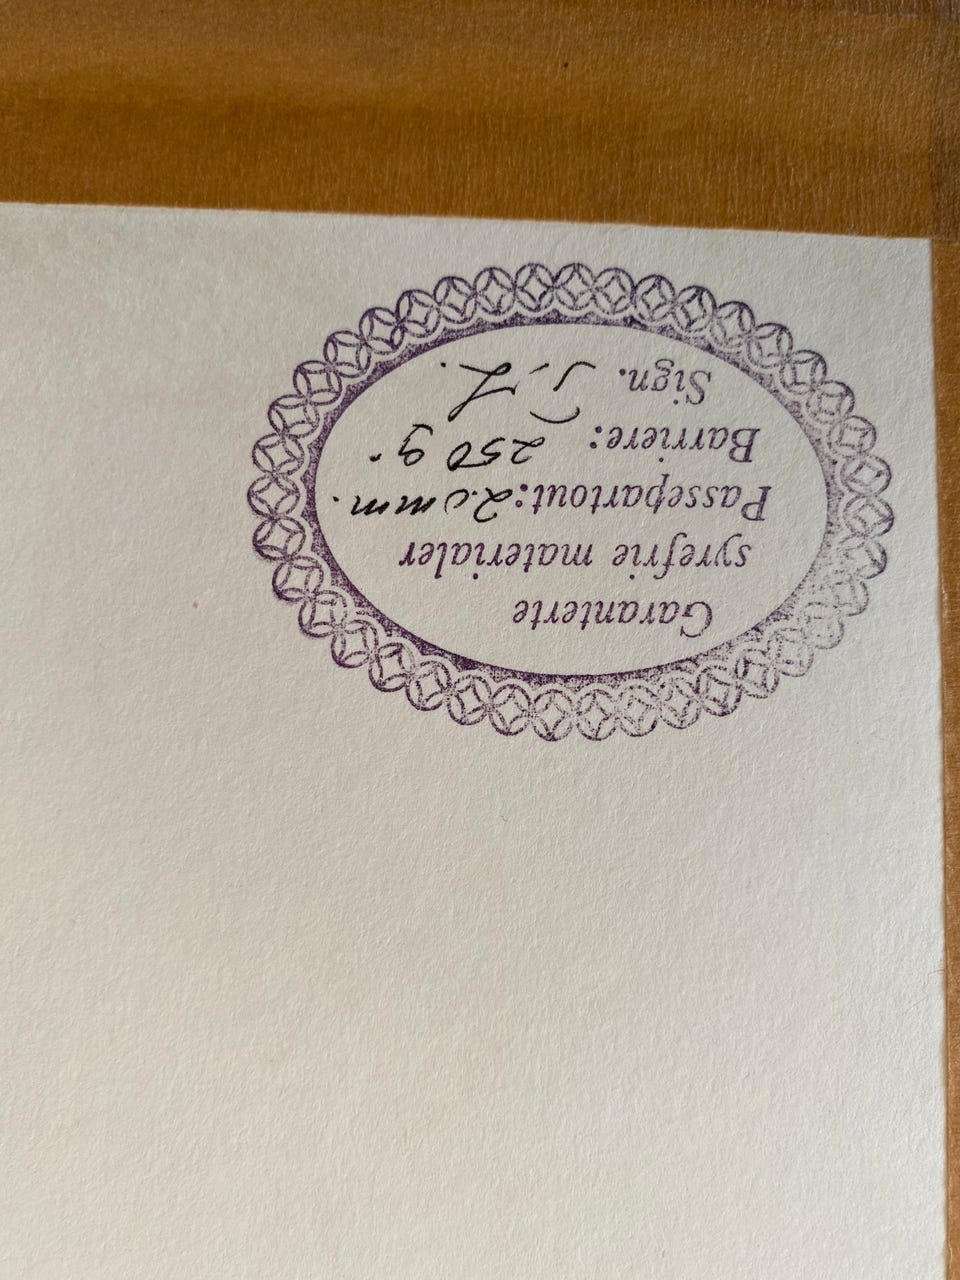 Garanterte
syrefrie materialer
Passepartout: 2.0 mm.
Barriere: 250 g.
Sign. T.L.